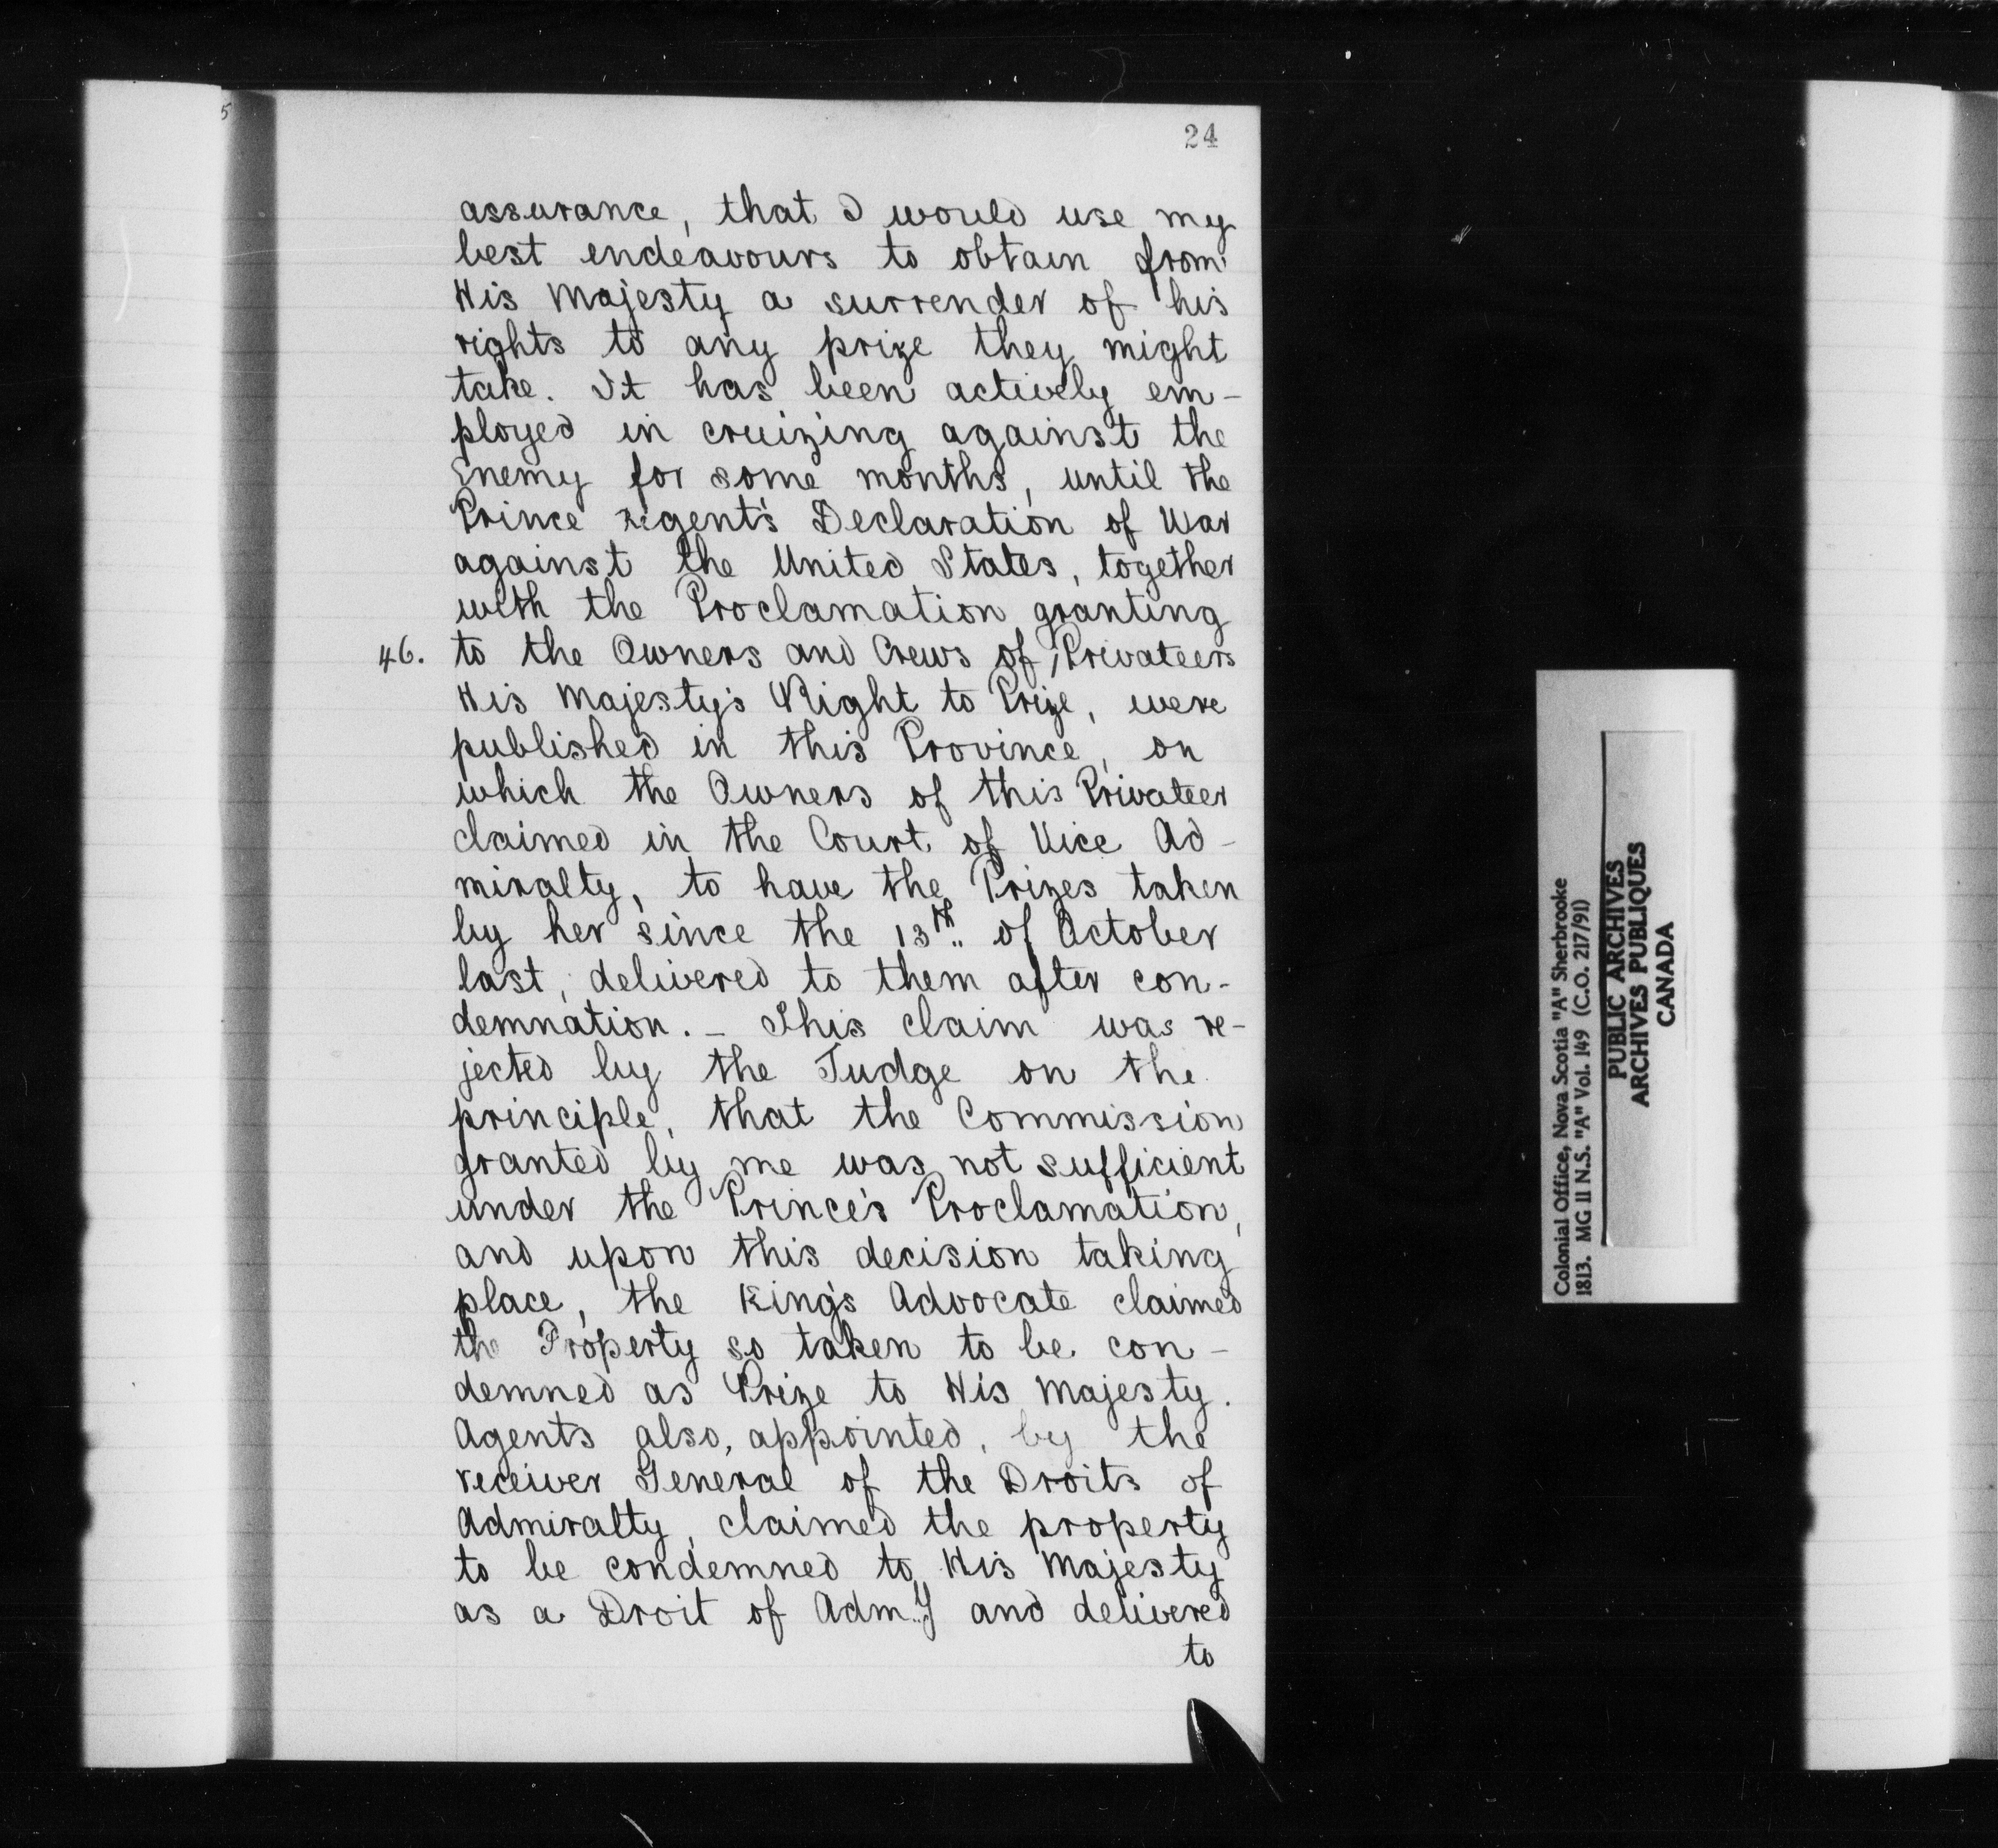 5
24
assurance, that I would use my
best endeavours to obtain from
His Majesty a surrender of his
rights to any prize they might
take. It has been actively em-
ployed in cruizing against the
Enemy for some months, until the
Prince Regent's Declaration of War
against the United States, together
with the Proclamation granting
46. to the Owners and Crews of Privateers
His Majesty's Right to Prize, were
published in this Province, on
which the Owners of this Privateer
claimed in the Court of Vice Ad-
miralty, to have the Prizes taken
by her since the 13th of October
last, delivered to them after con-
demnation. - This claim was re-
jected by the Judge on the
principle, that the Commission
granted by me was not sufficient
under the Prince's Proclamation,
and upon this decision taking
place, the King's Advocate claimed
the Property so taken to be con-
demned as Prize to His Majesty.
Agents also, appointed, by the
receiver General of the Droits of
Admiralty, claimed the property
to be condemned to His Majesty
as a Droit of Admy and delivered
to
Colonial Office, Nova Scotia "A" Sherbrooke
1813. MG 11 N.S. "A" Vol. 149 (C.O. 217/91)
PUBLIC ARCHIVES
ARCHIVES PUBLIQUES
CANADA